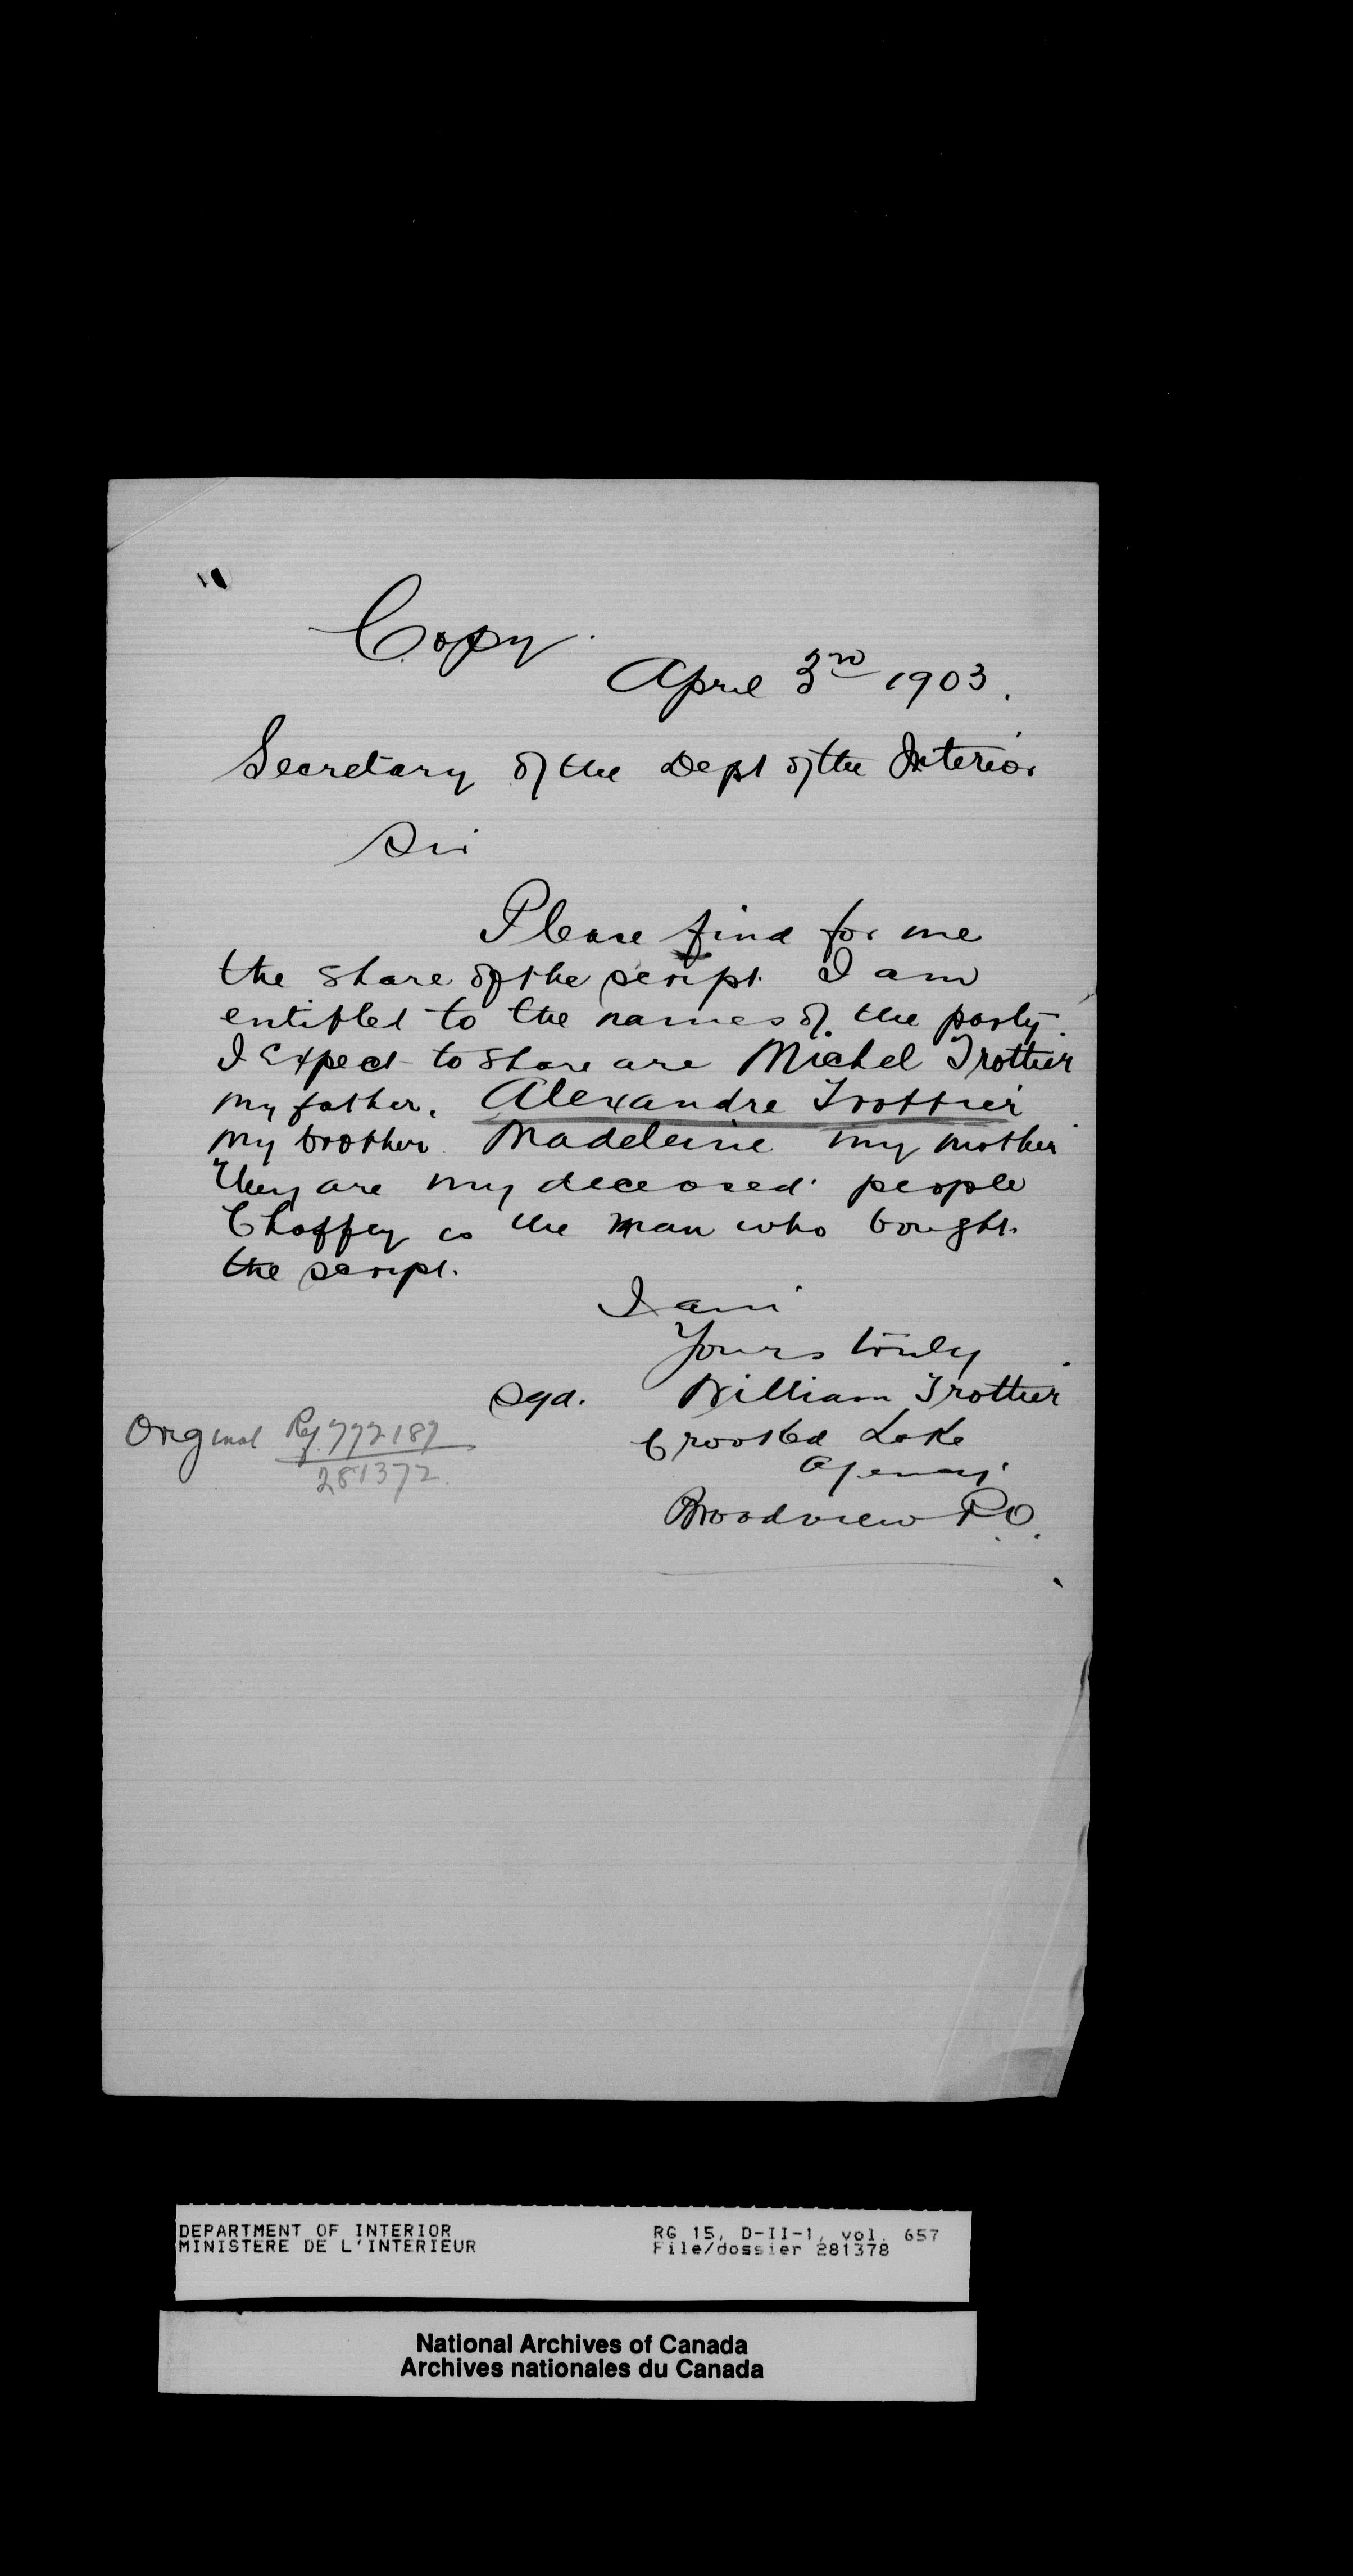 Copy.
April 3rd 1903.
Secretary of the Dept of the Interior
Sir
Please find for me
the share of the script. I am
entitled to the names of the party.
I expect to share are Michel Trottier
my father. Alexandre Trottier
my brother Madeleine my mother
They are my deceased people
Chaffey is the man who bought
the script.
I am
Yours truly
sgd. William Trottier
Crooked Lake
Agency
Broadview P.O.
Original
281372
DEPARTMENT OF INTERIOR
MINISTERE DE L'INTERIEUR
RG 15, D-II-1, vol. 657
File/dossier 281378
National Archives of Canada
Archives nationales du Canada